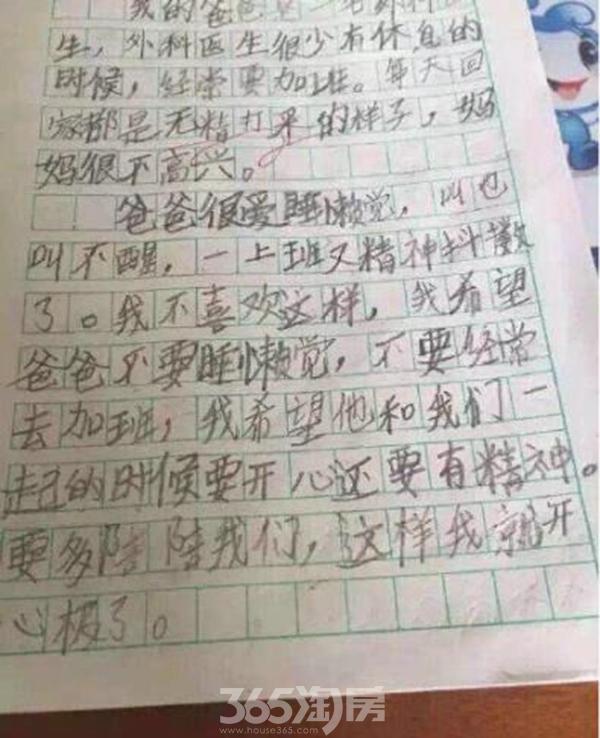 我的爸爸是一名外科医
生，外科医生很少有休息的
时候，经常要加班。每天回
家都是无精打采的样子，妈
妈很不高兴。
爸爸很爱睡懒觉，叫也
叫不醒，一上班又精神抖擞
了。我不喜欢这样，我希望
爸爸不要睡懒觉，不要经常
去加班，我希望他和我们一
起的时候要开心还要有精神。
要多陪陪我们，这样我就开
心极了。
365淘房
www.house365.com